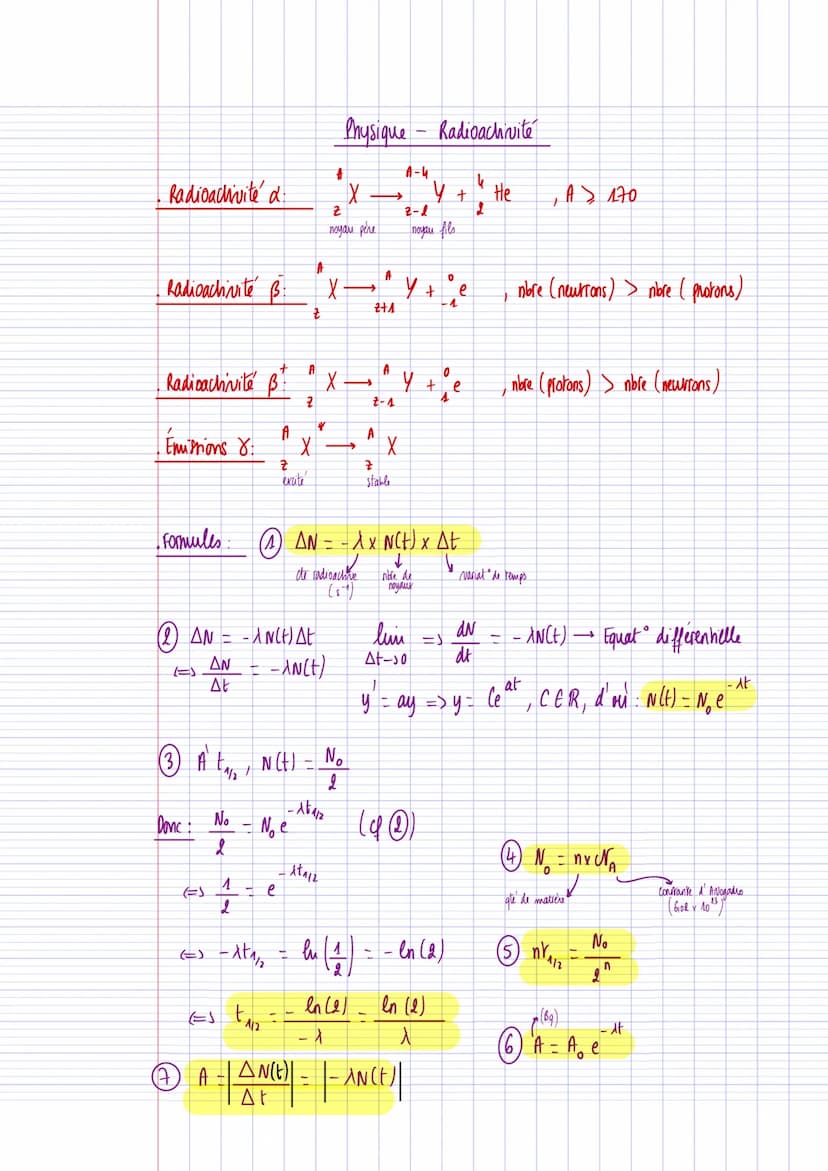 Physique - Radioactivité
. Radioactivité α: ᴬ_Z X → ᴬ⁻⁴_Z-2 Y + ⁴₂ He , A ⩾ 170
noyau père noyau fils
. Radioactivité β⁻: ᴬ_Z X → ᴬ_Z+1 Y + ⁰₋₁ e , nbre (neutrons) > nbre (protons)
. Radioactivité β⁺: ᴬ_Z X → ᴬ_Z-1 Y + ⁰₁ e , nbre (protons) > nbre (neutrons)
. Émissions γ: ᴬ_Z X* → ᴬ_Z X
excité stable
. Formules: ① ΔN = -λ x N(t) x Δt
cte radioactive (s⁻¹) nbre de noyaux variat° de temps
② ΔN = -λN(t)Δt lim Δt->0 => dN/dt = -λN(t) → Equat° différentielle
<=> ΔN/Δt = -λN(t)
y' = ay => y = Ce^at, C ∈ R, d'où : N(t) = N₀ e^-λt
③ À t₁/₂, N(t) = N₀/2
Donc : N₀/2 = N₀ e^-λt₁/₂ (cf ②)
<=> 1/2 = e^-λt₁/₂
<=> -λt₁/₂ = ln(1/2) = -ln(2)
<=> t₁/₂ = -ln(2)/-λ = ln(2)/λ
④ N₀ = n x N_A
qté de matière constante d'Avogadro
⑤ nt₁/₂ = N₀/2ⁿ
(Bq)
⑥ A = A₀ e^-λt
⑦ A = |ΔN(t)/Δt| = |-λN(t)|